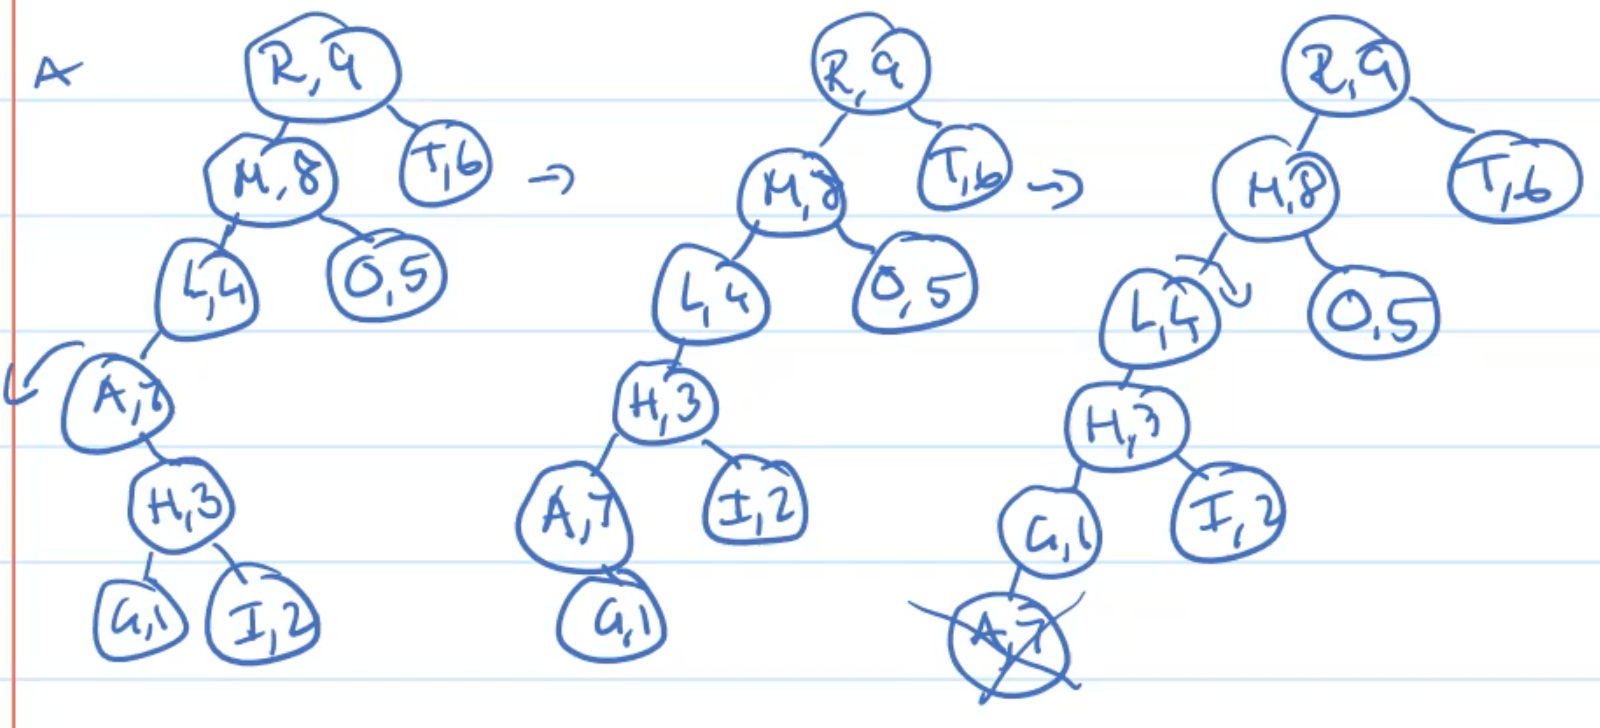 A
R,9
M,8
T,6
L,4
O,5
A,7
H,3
G,1
I,2
→
R,9
M,8
T,6
L,4
O,5
H,3
A,7
I,2
G,1
→
R,9
M,8
T,6
L,4
O,5
H,3
G,1
I,2
A,7